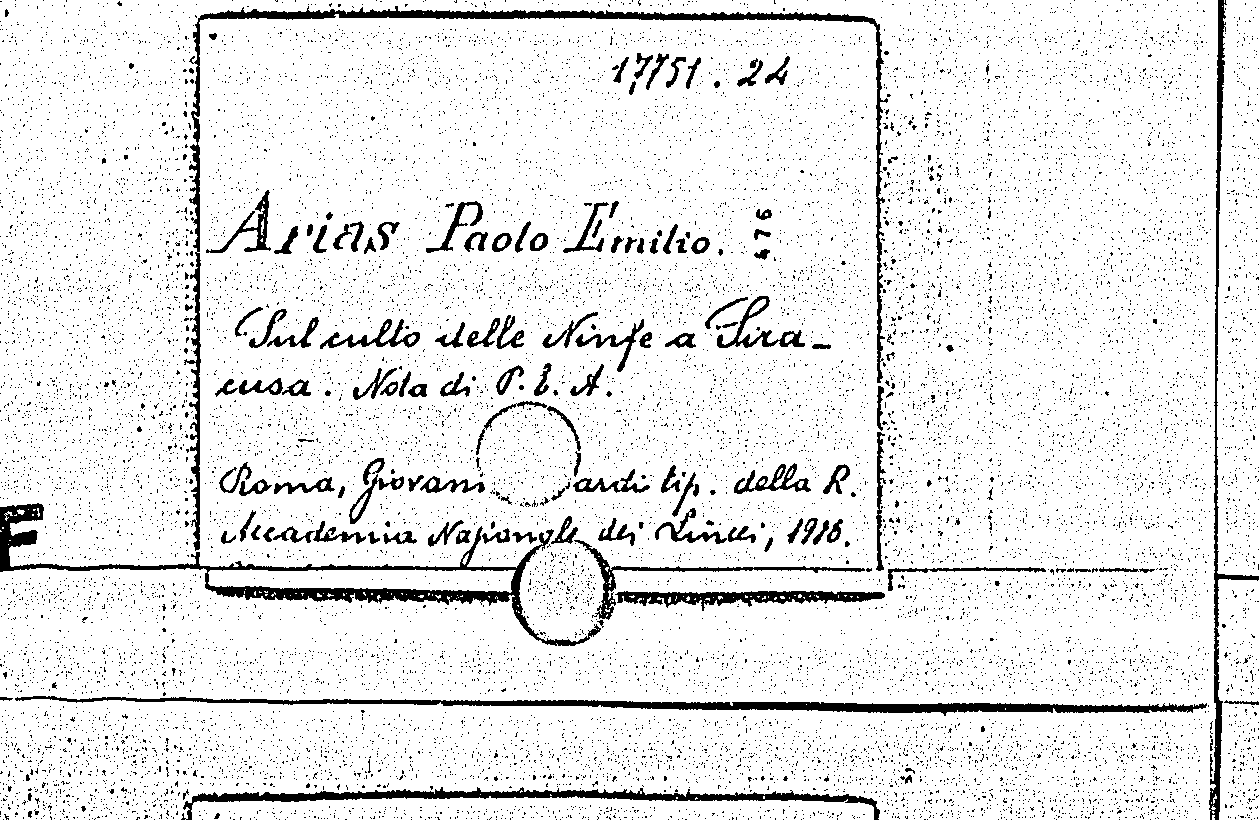 17751.24
Arias Paolo Emilio. 476
Sul culto delle Ninfe a Sira-
cusa. Nota di P. E. A.
Roma, tip. della R.
Accademia Nazionale dei Lincei,
F